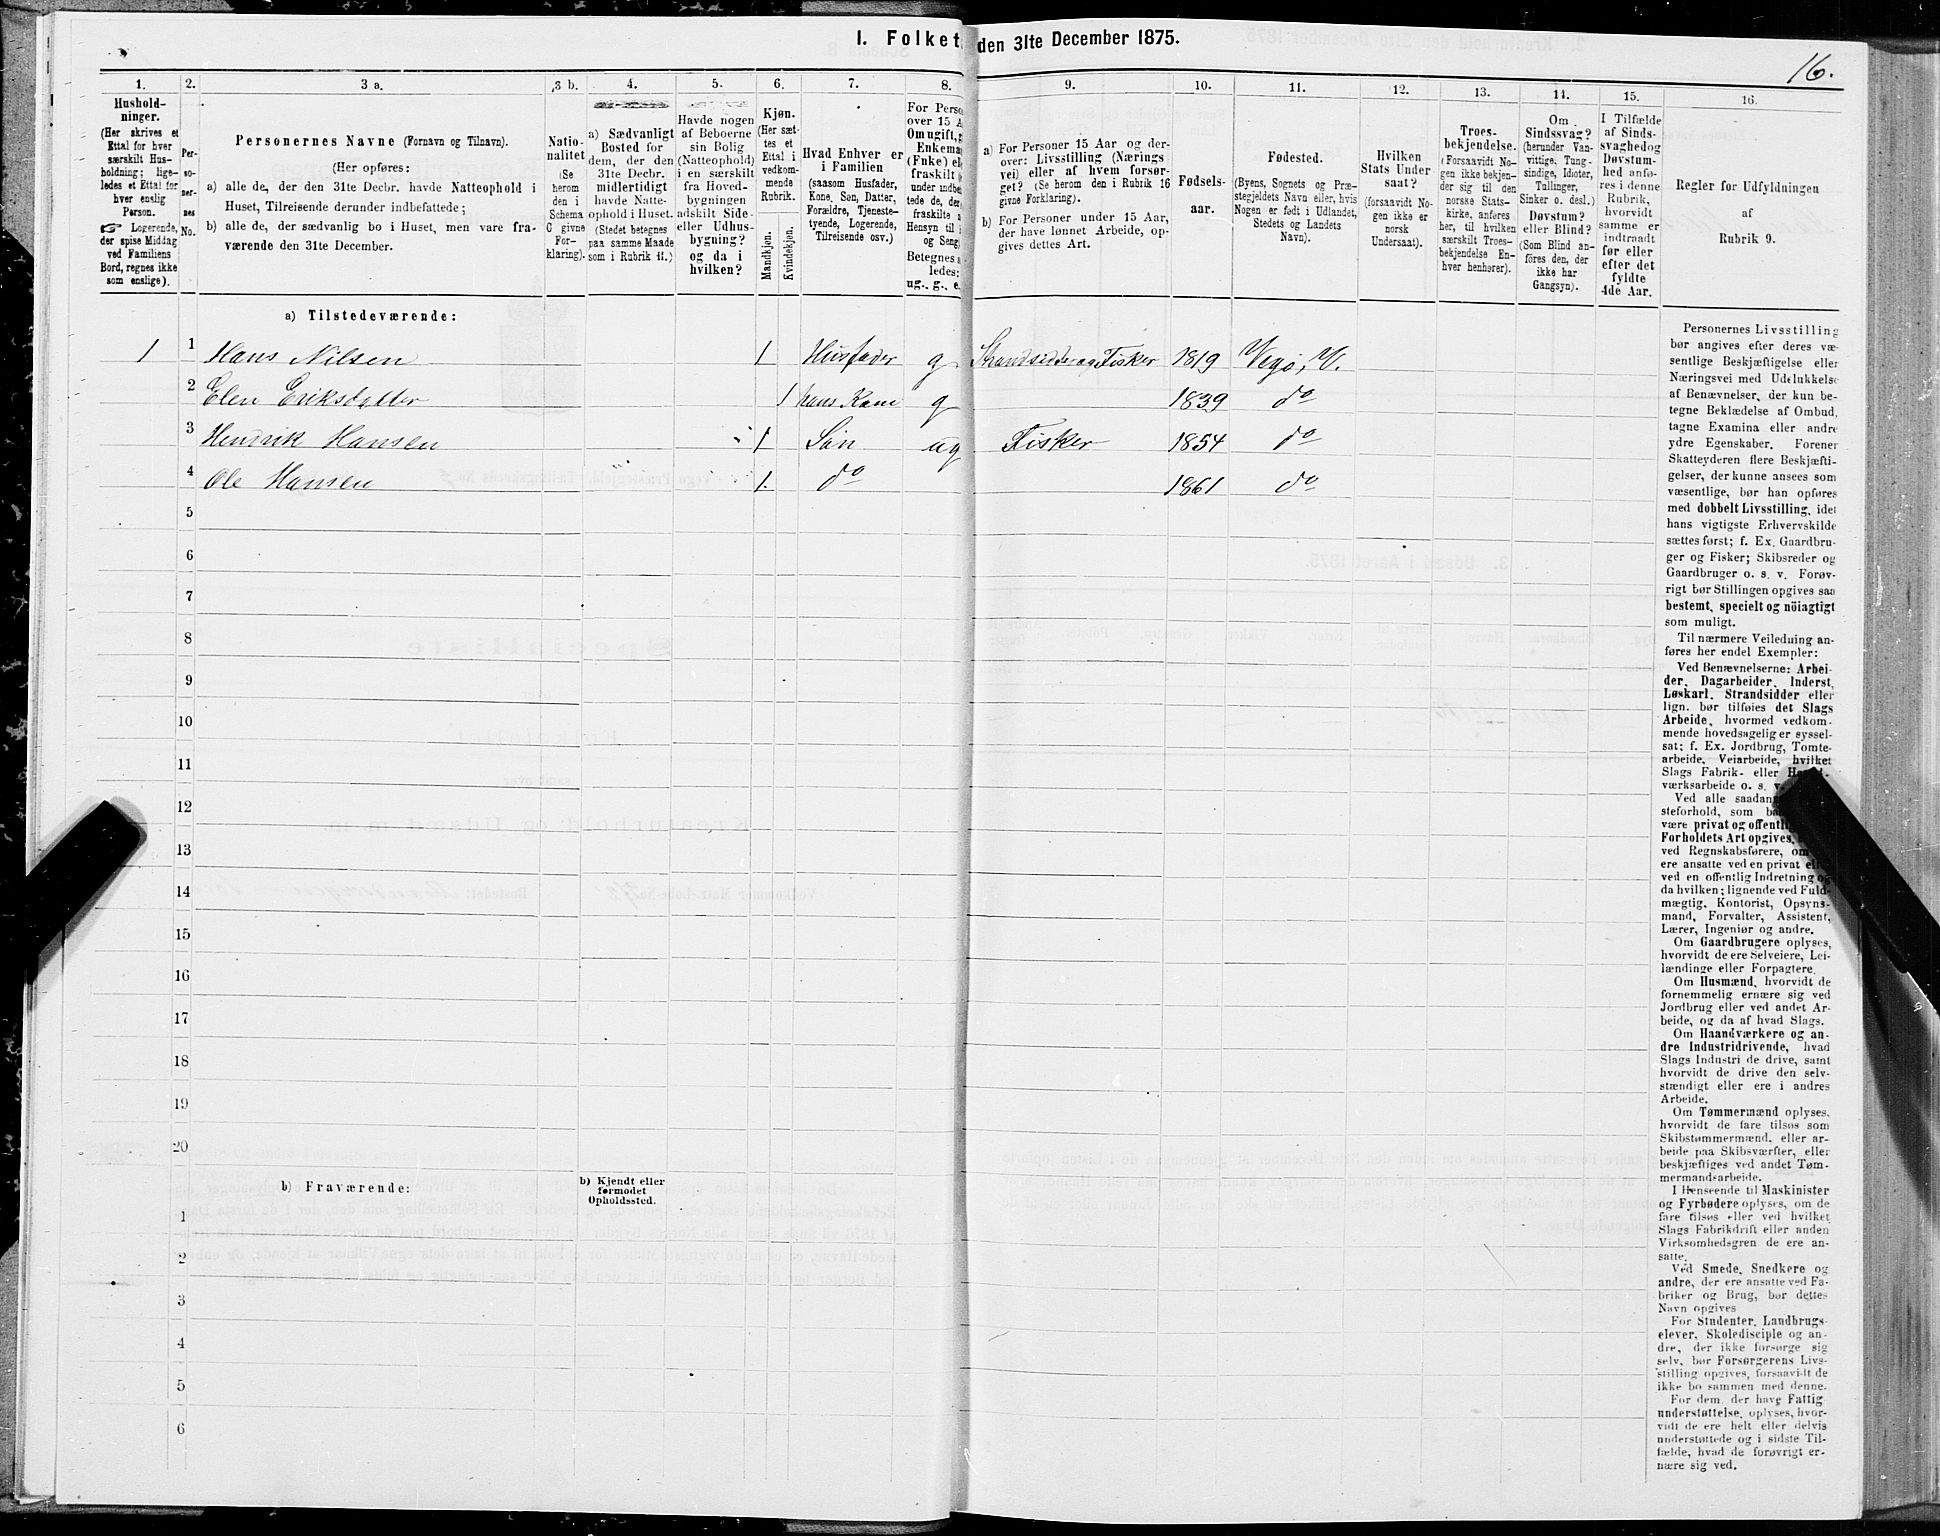 I. Folket
den 31te December 1875.
16.
1.
Hushold-
ninger.
(Her skrives et
Ettal for hver
særskilt Hus-
holdning; lige-
ledes et Ettal for
hver enslig
Person.
Logerende,
der spise Middag
ved Familiens
Bord, regnes ikke
som enslige).
2.
Per-
so-
ner-
nes
No.
3 a.
Personernes Navne (Fornavn og Tilnavn).
(Her opføres:
a) alle de, der den 31te Decbr. havde Natteophold i
Huset, Tilreisende derunder indbefattede;
b) alle de, der sædvanlig bo i Huset, men vare fra-
værende den 31te December.
3 b.
Natio-
nalitet
(Se
herom
den i
Schema
C givne
For-
klaring).
4.
a) Sædvanligt
Bosted for
dem, der den
31te Decbr.
midlertidigt
havde Natte-
ophold i Huset.
(Stedet betegnes
paa samme Maade
som i Rubrik 11.)
5.
Havde nogen
af Beboerne
sin Bolig
(Natteophold)
i en særskilt
fra Hoved-
bygningen
adskilt Side-
eller Udhus-
bygning?
og da i
hvilken?
6.
Kjøn.
(Her sæt-
tes et
Ettal i
vedkom-
mende
Rubrik.
Mandkjøn.
Kvindekjøn.
7.
Hvad Enhver er
i Familien
(saasom Husfader,
Kone, Søn, Datter,
Forældre, Tjeneste-
tyende, Logerende,
Tilreisende osv.)
8.
For Perso
over 15 A
Om ugift, g
Enkema
(Fnke) el
fraskilt
under indbe
tede de, der
fraskilte
Hensyn til
og Seng
Betegnes
ledes:
ug., g., e.
9.
a) For Personer 15 Aar og der-
over: Livsstilling (Nærings
vei) eller af hvem forsør-
get? (Se herom den i Rubrik 16
givne Forklaring).
b) For Personer under 15 Aar,
der have lønnet Arbeide, op-
gives dettes Art.
10.
Fødsels-
aar.
11.
Fødested.
(Byens, Sognets og Præ-
stegjeldets Navn eller, hvis
Nogen er født i Udlandet,
Stedets og Landets
Navn).
12.
Hvilken
Stats Under
saat?
(forsaavidt No-
gen ikke er
norsk
Undersaat).
13.
Troes-
bekjendelse.
(Forsaavidt No-
gen ikke bekjen-
der sig til den
norske Stats-
kirke, anføres
her, til hvilken
særskilt Troes-
bekjendelse En-
hver henhører).
14.
Om
Sindssvag?
(herunder Van-
vittige, Tung-
sindige, Idioter,
Tullinger,
Sinker o. desl.)
Døvstum?
eller Blind?
(Som Blind an-
føres den, der
ikke har
Gangsyn).
15.
I Tilfælde
af Sinds-
svaghed og
Døvstum-
hed anfø-
res i denne
Rubrik,
hvorvidt
samme er
indtraadt
før eller
efter det
fyldte
4de Aar.
16.
Regler for Udfyldningen
af
Rubrik 9.
a) Tilstedeværende:
1 1 Hans Nilsen 1 Husfader g Strandsidder og Fisker 1819 Vegø, V.
2 Elen Eriksdatter 1 hans Kone g 1839 do
3 Hendrik Hansen 1 Søn ug Fisker 1854 do
4 Ole Hansen 1 do 1861 do
5
6
7
8
9
10
11
12
13
14
15
16
17
18
19
20
b) Fraværende:
b) Kjendt eller
formodet
Opholdssted.
1
2
3
4
5
6
Personernes Livsstilling
bør angives efter deres væ
sentlige Beskjæftigelse eller
Næringsvei med Udelukkelse
af Benævnelser, der kun be-
tegne Beklædelse af Ombud,
tagne Examina eller andre
ydre Egenskaber. Forener
Skatteyderen flere Beskjæfti-
gelser, der kunne ansees som
væsentlige, bør han opføres
med dobbelt Livsstilling, idet
hans vigtigste Erhvervskilde
sættes først; f. Ex. Gaardbru-
ger og Fisker; Skibsreder og
Gaardbruger o. s. v. Forøv-
rigt bør Stillingen opgives saa
bestemt, specielt og nöiagtigt
som muligt.
Til nærmere Veiledning an-
føres her endel Exempler:
Ved Benævnelserne: Arbei-
der, Dagarbeider, Inderst,
Løskarl, Strandsidder eller
lign. bør tilføies det Slags
Arbeide, hvormed vedkom-
mende hovedsagelig er syssel-
sat; f. Ex. Jordbrug, Tomte-
arbeide, Veiarbeide, hvilket
Slags Fabrik- eller
værksarbeide o. s. v.
Ved alle saadan
steforhold, som
være privat og offentlig
Forholdets Art opgives,
ved Regnskabsførere, om
ere ansatte ved en privat eller
ved en offentlig Indretning og
da hvilken; lignende ved Fuld-
mægtig, Kontorist, Opsyns-
mand, Forvalter, Assistent,
Lærer, Ingeniør og andre.
Om Gaardbrugere oplyses,
hvorvidt de ere Selveiere, Lei-
lændinge eller Forpagtere.
Om Husmænd, hvorvidt de
fornemmelig ernære sig ved
Jordbrug eller ved andet Ar-
beide, og da af hvad Slags.
Om Haandværkere og an-
dre Industridrivende, hvad
Slags Industri de drive, samt
hvorvidt de drive den selv-
stændigt eller ere i andres
Arbeide.
Om Tømmermænd oplyses,
hvorvidt de fare tilsøs som
Skibstømmermænd, eller ar-
beide paa Skibsværfter, eller
beskjæftiges ved andet Tøm-
mermandsarbeide.
I Henseende til Maskinister
og Fyrbødere oplyses, om de
fare tilsøs eller ved hvilket
Slags Fabrikdrift eller anden
Virksomhedsgren de ere an-
satte.
Ved Smede, Snedkere og
andre, der ere ansatte ved Fa-
briker og Brug, bør dettes
Navn opgives
For Studenter, Landbrugs-
elever, Skoledisciple og an-
dre, der ikke forsørge sig
selv, bør Forsørgerens Livs-
stilling opgives, forsaavidt de
ikke bo sammen med denne.
For dem, der have Fattig
understøttelse, oplyses, hvor-
vidt de ere helt eller delvis
understøttede og i sidste Til-
fælde, hvad de forøvrigt er-
nære sig ved.